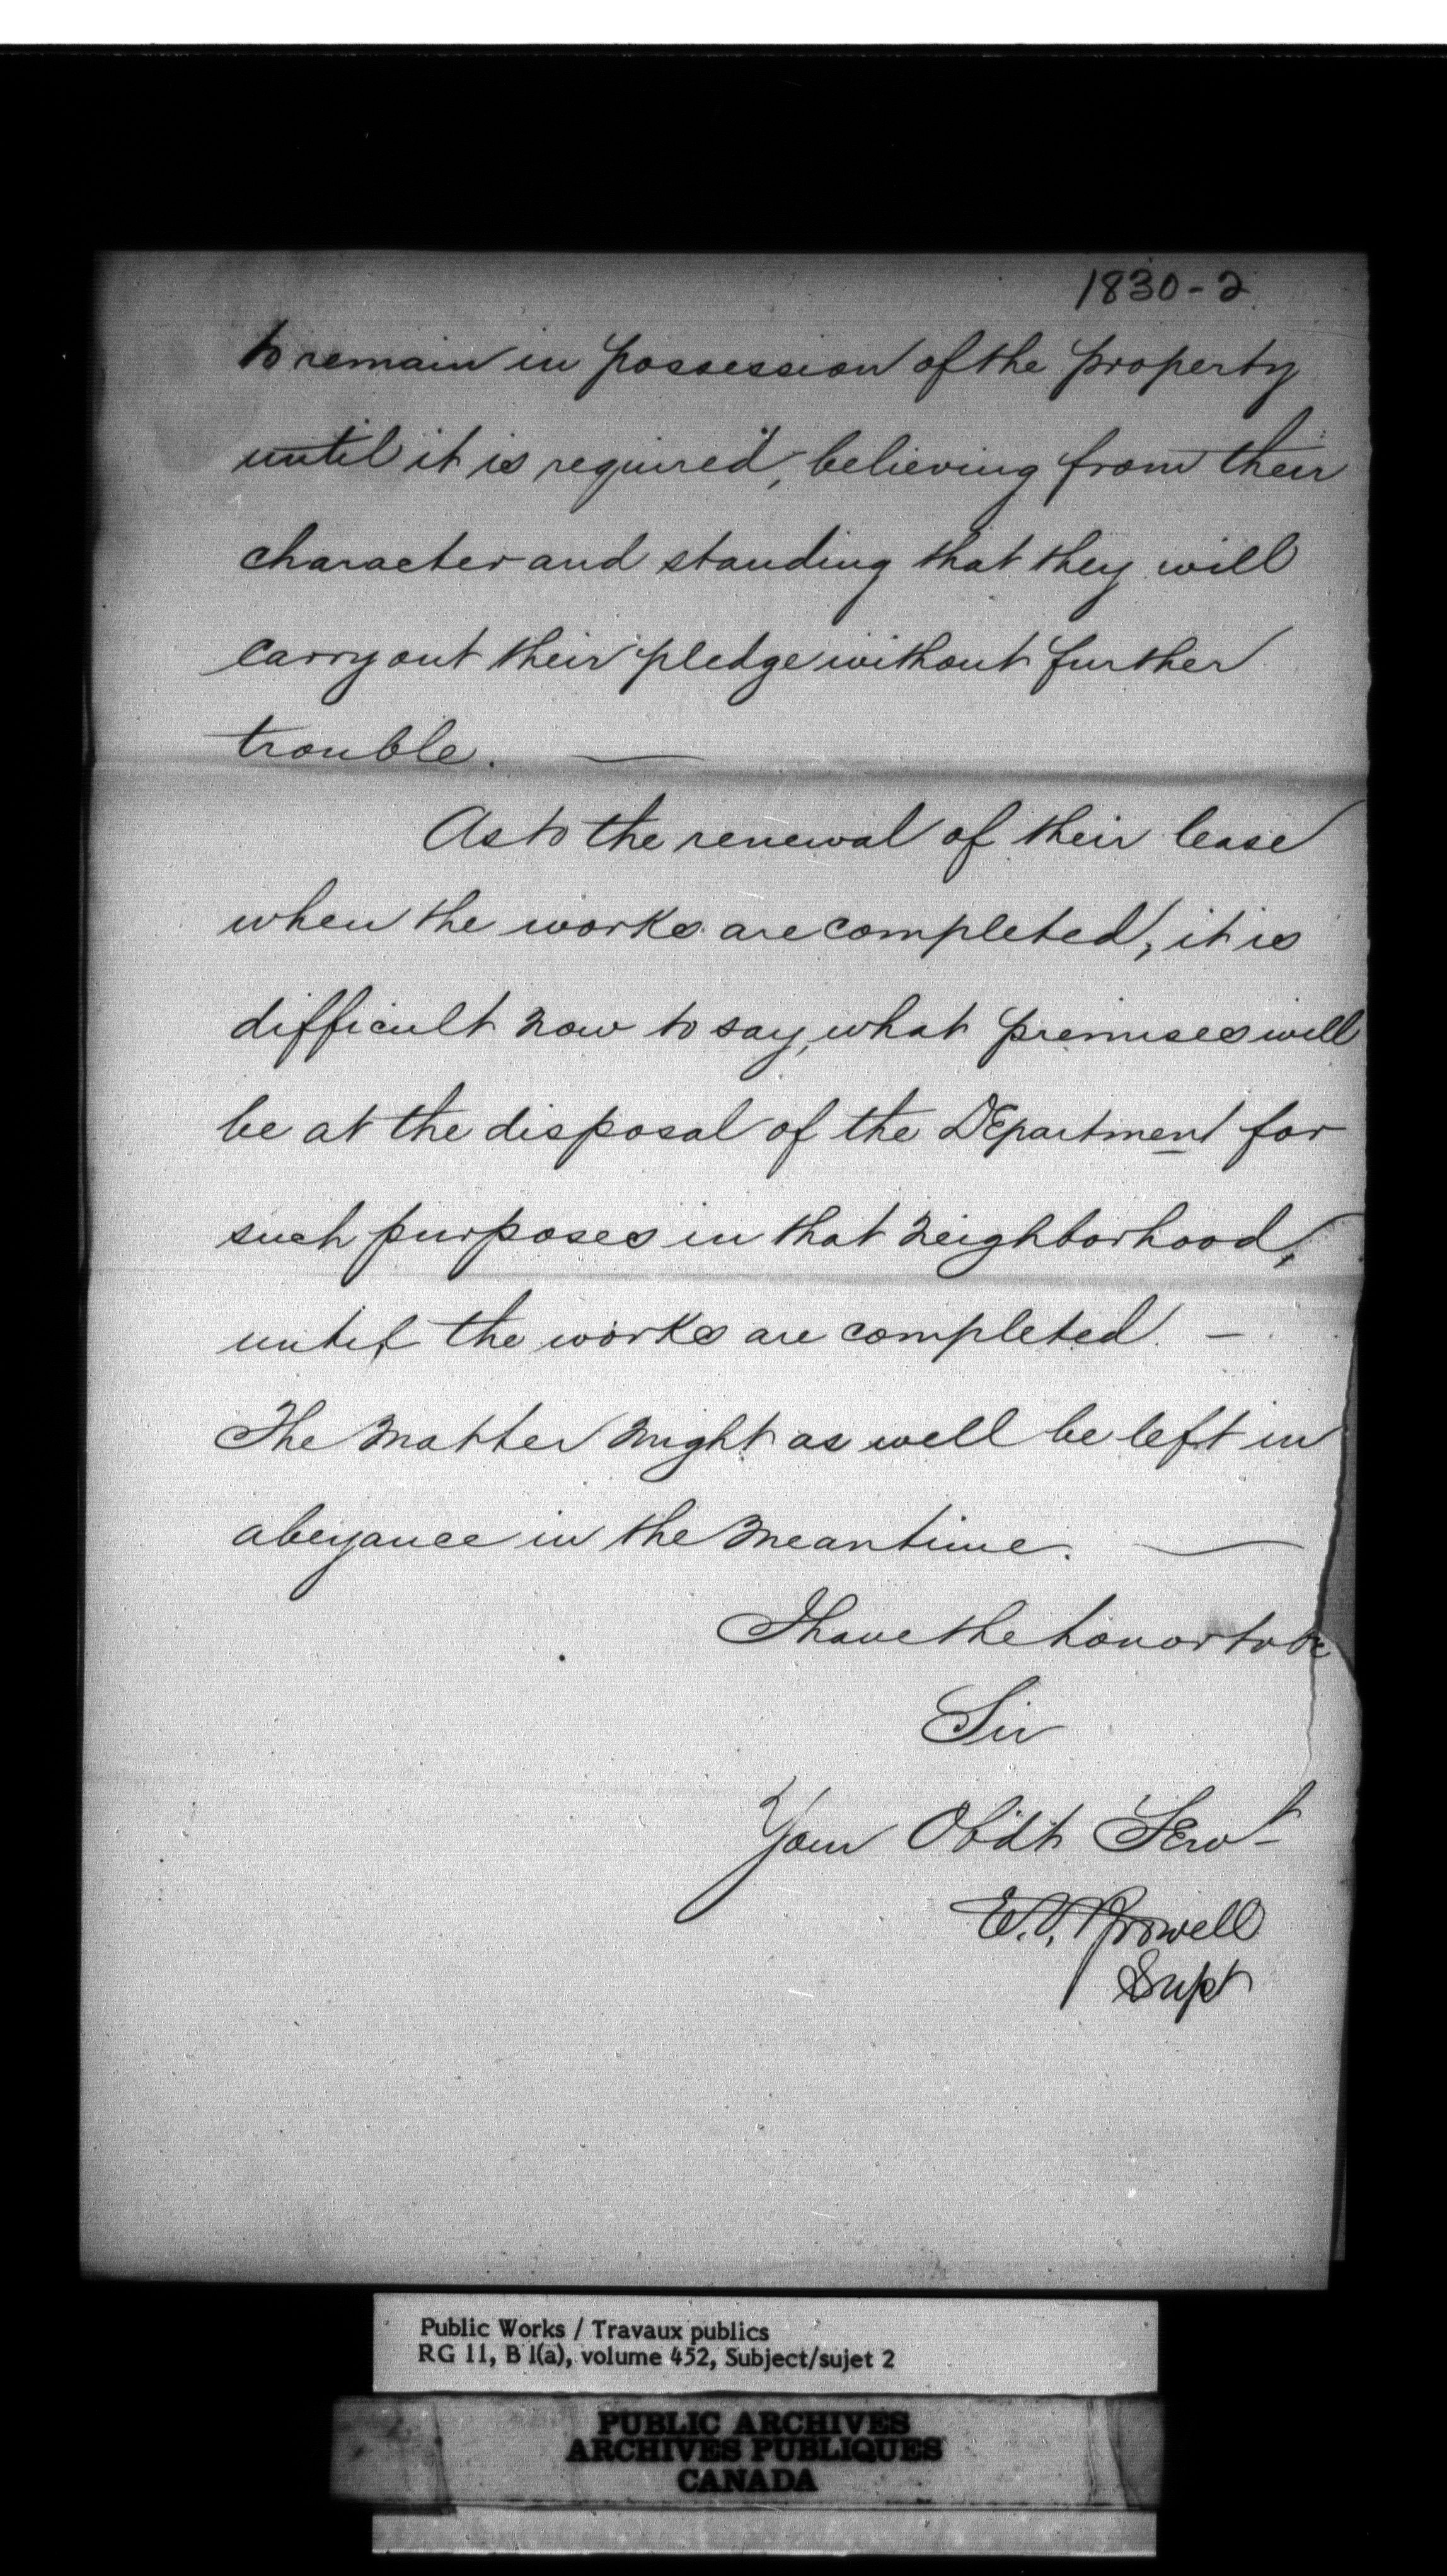 1830-2
to remain in possession of the property
until it is required, believing from their
character and standing that they will
carry out their pledge without further
trouble. —
As to the renewal of their lease
when the works are completed, it is
difficult now to say, what premises will
be at the disposal of the Department for
such purposes in that neighborhood,
until the works are completed. —
The matter might as well be left in
abeyance in the meantime. —
I have the honor to be
Sir
Your Obdt Servt
Supt
Public Works / Travaux publics
RG 11, B 1(a), volume 452, Subject/sujet 2
PUBLIC ARCHIVES
ARCHIVES PUBLIQUES
CANADA